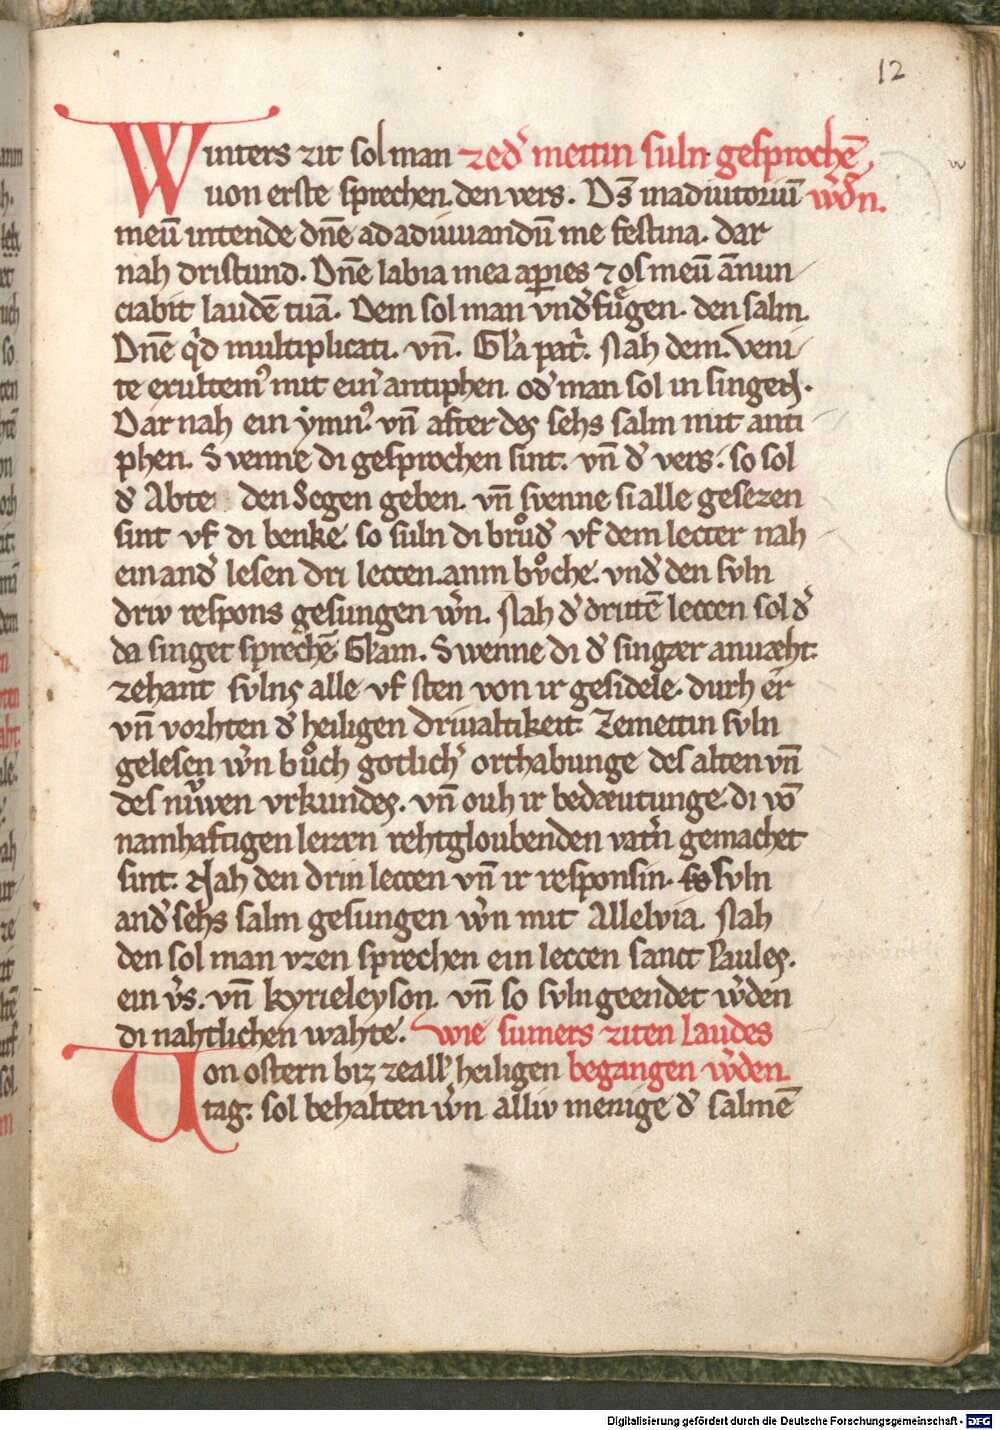 12
Winters zit sol man zed͛ mettin suln gesprochē
von erste sprechen den vers. Ds̄ inadiutoriū wˀdn.
meū intende dn̄e ad adiuuandū me festina. dar
nah dristund. Dn̄e labia mea ap̲ies ⁊ os meū ānun
ciabit laudē tuā. Dem sol man vnd͛ fuͤgen. den salm.
Dn̄e qͥd multiplicati. vn̄. Gl̓a patͥ. Nah dem. veni
te exultemꝰ mit ein͛ antiphen. od͛ man sol in singen.
Dar nah ein ẏmnꝰ. vn̄ after des sehs salm mit anti
phen. Swenne di gesprochen sint. vn̄ d͛ vers. so sol
d͛ Abte den Segen geben. vn̄ swenne si alle gesezen
sint vf di benke. so suln di bruͦd͛ vf dem lecter nah
ein and͛ lesen dri leccen anm bvͦche. vnd͛ den svln
driv respons gesungen w͛n. Nah d͛ drittē leccen sol d͛
da singet sprechē Gl̓am. Swenne di d͛ singær anuæht.
zehant svlns alle vf sten von ir gesidele. durh er
vn̄ vorhten d͛ heiligen drivaltikeit. Zemettin svln
gelesen w͛n buͦch gotlich͛ orthabunge des alten vn̄
des niwen vrkundes. vn̄ ouh ir bedæutunge. di vō
namhaftigen lerren rehtgloubenden vat͛n gemachet
sint. Nah den drin leccen vn̄ ir responsin. so svln
and͛ sehs salm gesungen w͛n mit Allelvia. Nah
den sol man vzen sprechen ein leccen sanct Paules.
ein v͛s. vn̄ kyrieleyson. vn̄ so svln geendet w͛den
di nahtlichen wahte. wie sumers ziten Laudes
Von ostern biz zeall͛ heiligen begangen w͛den.
tag. sol behalten w͛n alliv menige d͛ salmē
Digitalisierung gefördert durch die Deutsche Forschungsgemeinschaft - DFG